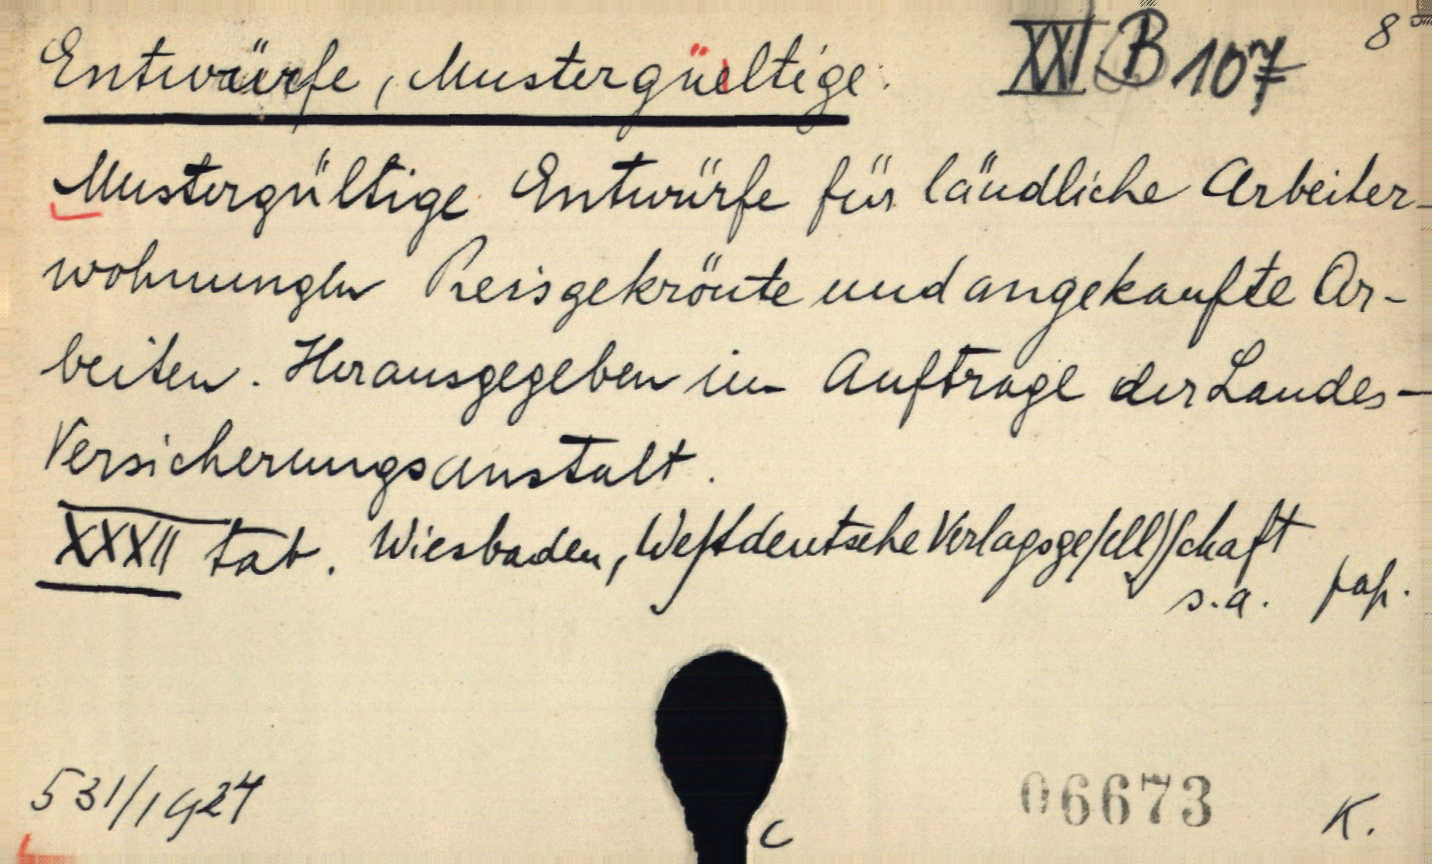 Entwürfe, Mustergültige. XXI B 107 8°
Mustergültige Entwürfe für ländliche Arbeiter-
wohnungen Preisgekrönte und angekaufte Ar-
beiten. Herausgegeben im Auftrage der Landes-
Versicherungsanstalt.
XXXII tab. Wiesbaden, Westdeutsche Verlagsgesellschaft
s.a. pap.
531/1927
06673 K.
C